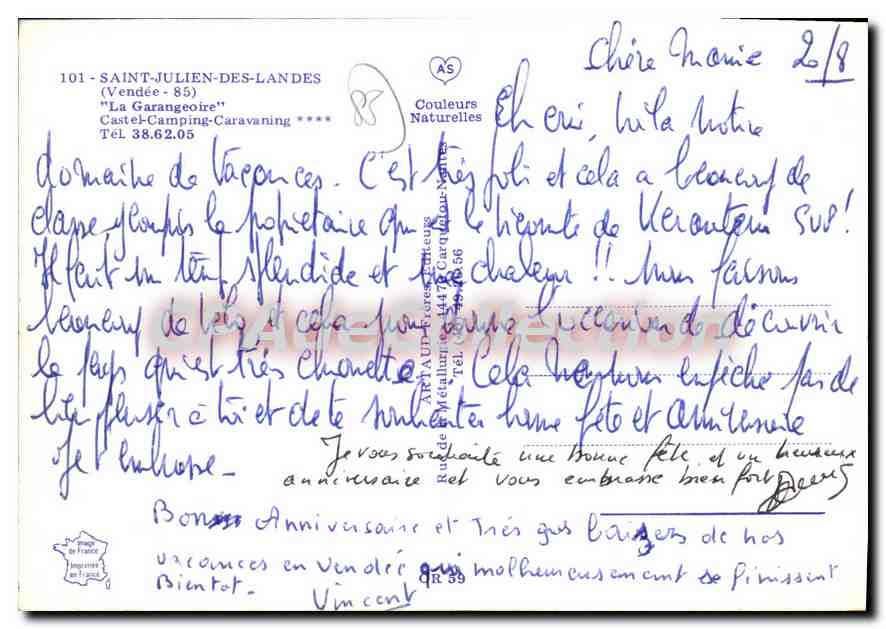 101 - SAINT-JULIEN-DES-LANDES
(Vendée - 85)
"La Garangeoire"
Castel-Camping-Caravaning ****
Tél. 38.62.05
85
AS
Couleurs
Naturelles
Chère Mamie 20/8
Eh oui, voilà notre
domaine de vacances. C'est très joli et cela a beaucoup de
classe, y compris le propriétaire qui le vicomte de SVP!
Il fait un temps splendide et une chaleur !! Nous faisons
beaucoup de vélo et cela nous donne l'occasion de découvrir
le pays qui est très chouette. Cela ne nous empêche pas de
bien penser à toi et de te souhaiter bonne fête et anniversaire
Je t'embrasse -
Je vous souhaite une bonne fête et un heureux
anniversaire et vous embrasse bien fort
Bon Anniversaire et Très gros baisers de nos
vacances en vendée qui malheureusement se finissent
Bientot.
Vincent
ARTAUD Frères, Editeurs
Rue de la Métallurgie, 44470 Carquefou-Nantes
Tél. 49.20.56
QR 59
Image
de France
Imprimée
en France
CPADE Collection